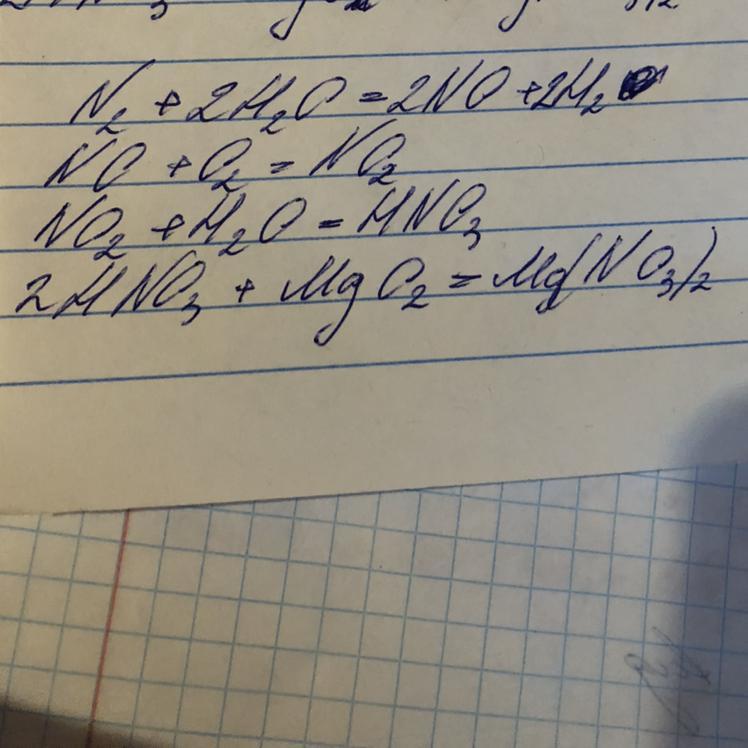 N₂ + 2H₂O = 2NO + 2H₂
NO + O₂ = NO₂
NO₂ + H₂O = HNO₃
2HNO₃ + MgO₂ = Mg(NO₃)₂